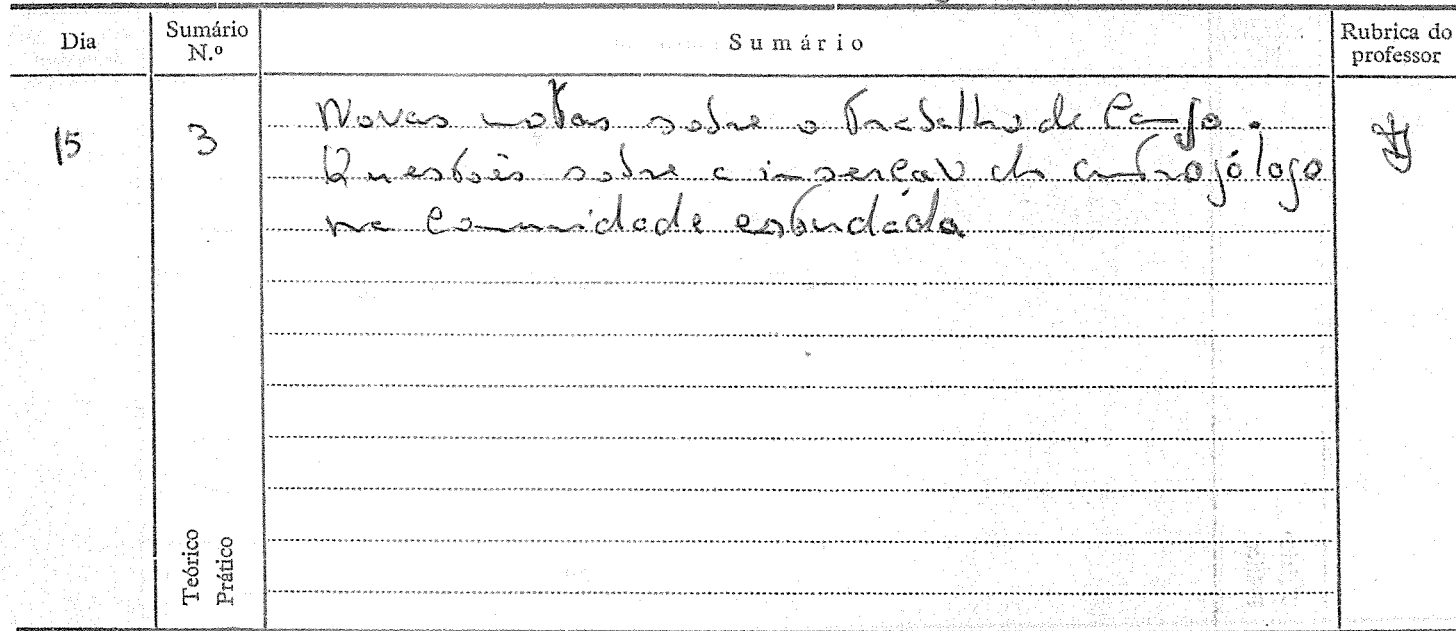 Dia
Sumário
N.º
Sumário
Rubrica do
professor
15
3
Novas notas sobre o trabalho de Campo.
Questões sobre a inserção do antropólogo
na Comunidade estudada
Teórico
Prático